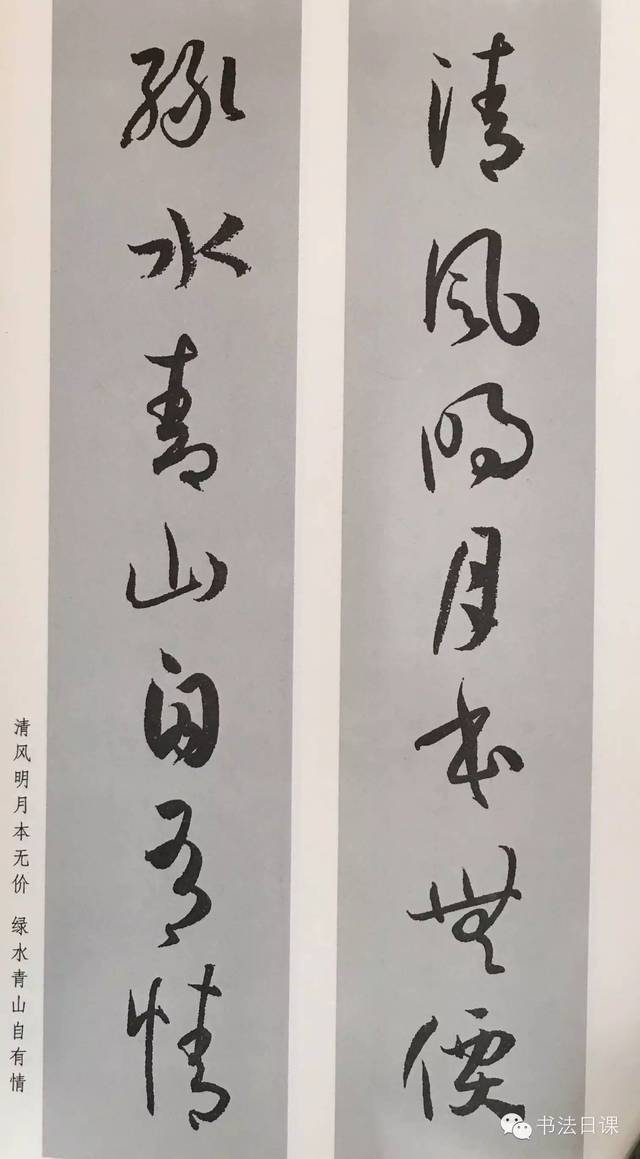 清風明月本無價
綠水青山自有情
清风明月本无价 绿水青山自有情
书法日课